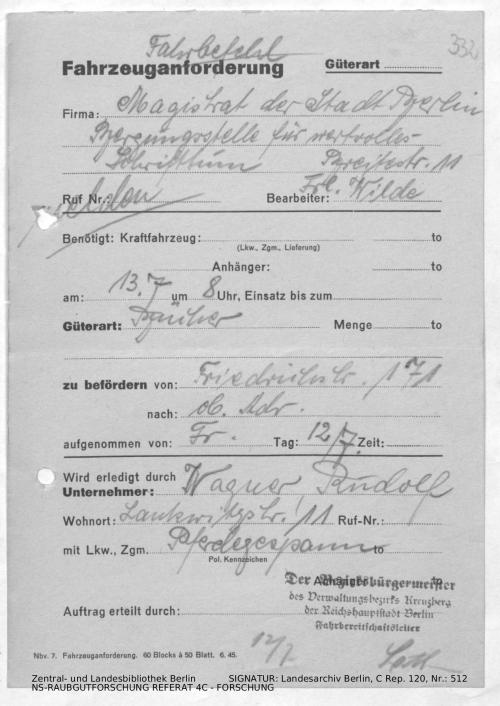 332
Fahrbefehl
Fahrzeuganforderung Güterart
Firma: Magistrat der Stadt Berlin
Bergungsstelle für wertvolles
Schrifttum Breitestr. 11
Ruf Nr.: Bearbeiter: Frl. Wilde
Benötigt: Kraftfahrzeug: to
(Lkw., Zgm., Lieferung)
Anhänger: to
am: 13.7 um 8 Uhr, Einsatz bis zum
Güterart: Bücher Menge to
zu befördern von: Friedrichstr. 171
nach: ob. Adr.
aufgenommen von: Fr. Tag: 12/7. Zeit:
Wird erledigt durch
Unternehmer: Wagner, Rudolf
Wohnort: Lankwitzstr. 11 Ruf-Nr.:
mit Lkw., Zgm. Pferdegespann to
Pol. Kennzeichen
Der Bezirksbürgermeister
des Verwaltungsbezirks Kreuzberg
der Reichshauptstadt Berlin
Fahrbereitschaftsleiter
Auftrag erteilt durch:
12/7
Nbv. 7. Fahrzeuganforderung. 60 Blocks à 50 Blatt. 6. 45.
Zentral- und Landesbibliothek Berlin SIGNATUR: Landesarchiv Berlin, C Rep. 120, Nr.: 512
NS-RAUBGUTFORSCHUNG REFERAT 4C - FORSCHUNG